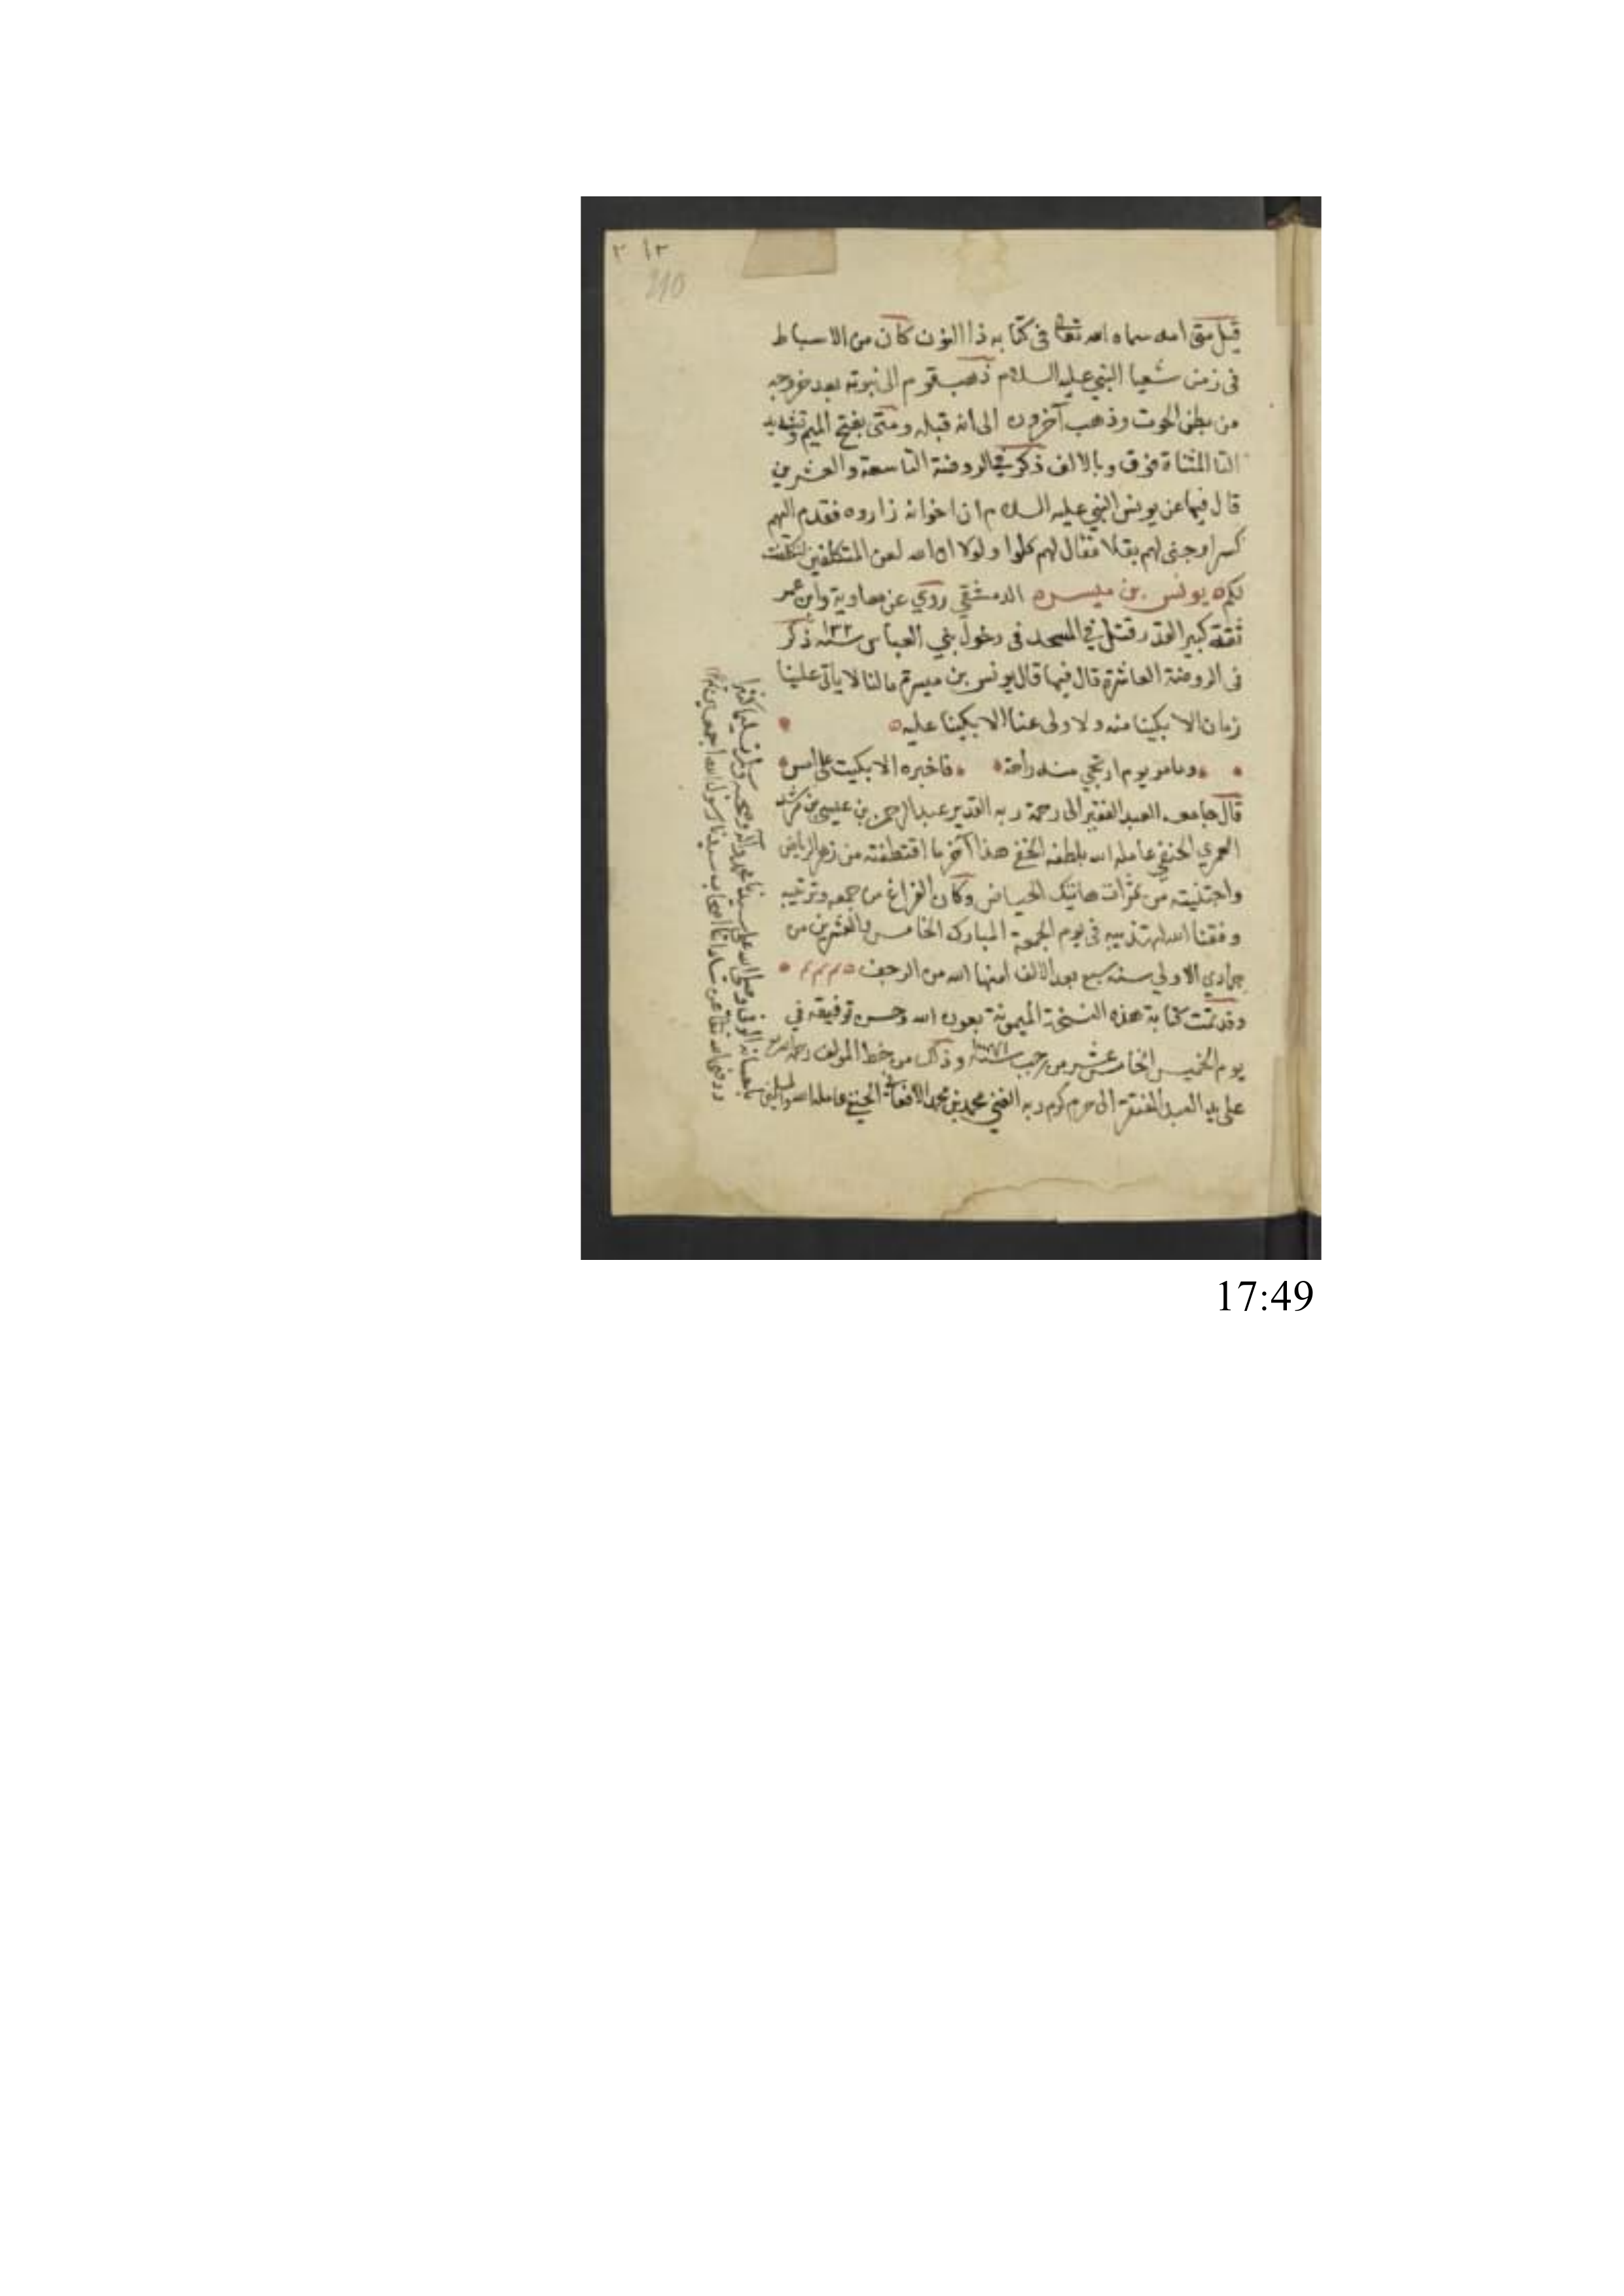 ٢١٣
210
قيل متى امه سماه الله تعالى فى كتابه ذا النون كان من الاسباط
فى زمن شعيا النبي عليه السلام ذهب قوم الى نبوته بعد خروجه
من بطن الحوت وذهب آخرون الى انه قبله ومتى بفتح الميم وتشديد
التا المثناة فوق وبالالف ذكر في الروضة التاسعة والعشرين
قال فيها عن يونس النبي عليه السلام ان اخوانه زاروه فقدم اليهم
كسرا وجنى لهم بقلا فقال لهم كلوا ولولا ان الله لعن المتكلفين لتكلفت
لكم يونس بن ميسره الدمشقي روي عن معاوية وابن عمر
ثقة كبير القدر قتل في المسجد فى دخول بني العباس سنه ١٣٢ ذكر
فى الروضة العاشرة قال فيها قال يونس بن ميسرة مالنا لا ياتى علينا
زمان الا بكينا منه ولا ولى عنا الا بكينا عليه
وما مر يوم ارتجي منه راحة فاخبره الا بكيت على امس
قال جامعه العبد الفقير الى رحمة ربه القدير عبد الرحمن بن عيسى بن مرشد
العمري الحنفي عامله الله بلطفه الخفي هذا آخر ما اقتطفته من زهر الرياض
واجتنيته من ثمرات هاتيك الحياض وكان الفراغ من جمعه وترتيبه
وفقنا الله لتهذيبه فى يوم الجمعة المبارك الخامس والعشرين من
جمادي الاولي سنه سبع بعد الالف امنها الله من الرجف
وقد تمت كتابة هذه النسخة الميمونة بعون الله وحسن توفيقه في
يوم الخميس الخامس عشر من رجب سنة وذلك من خط المولف رحمه الله
على يد العبد المفتقر الى كرم ربه الغني محمد بن محمد الحنفي عامله الله
باحسانه الوفى وصلى الله على سيدنا محمد وآله وصحبه وسلم تسليما كثيرا
ورضي الله تعالى عن ساداتنا اصحاب سيدنا رسول الله اجمعين
17:49